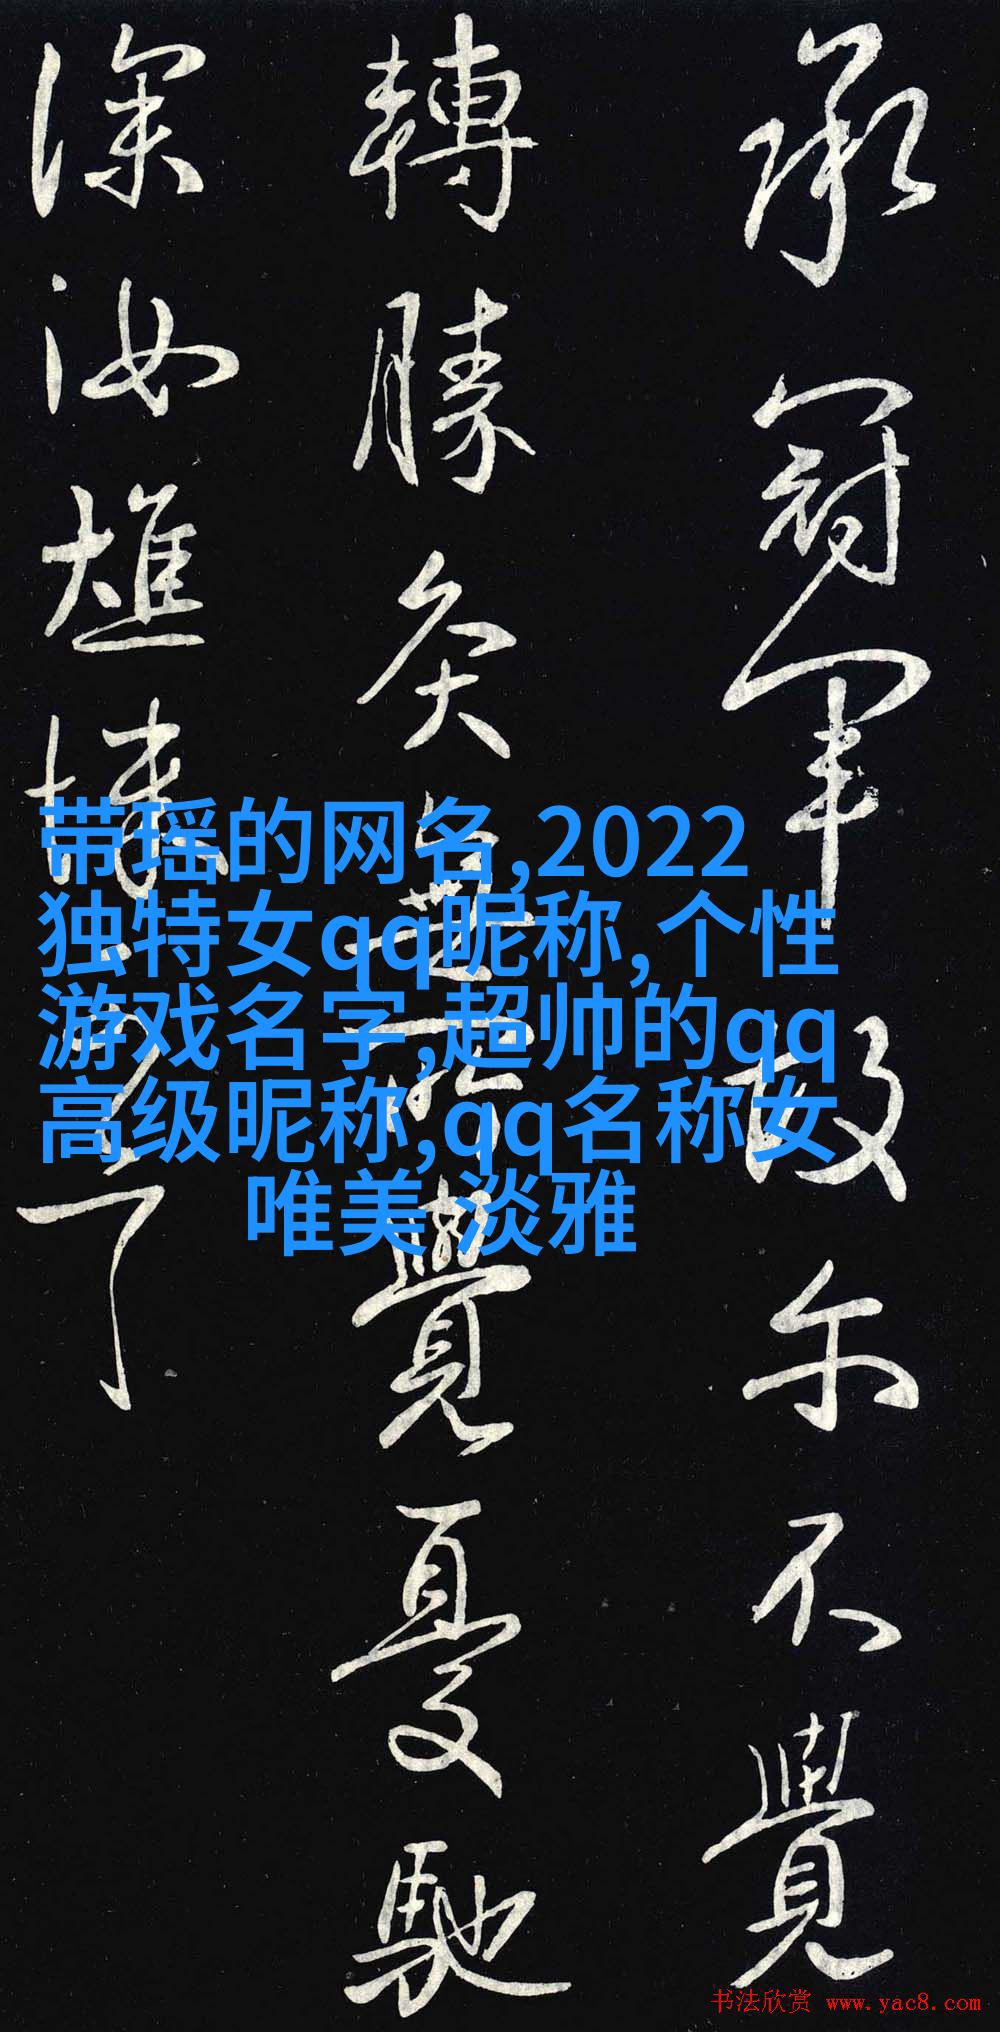 承冠軍故尔不覺
轉勝灸無所覺憂馳
深汝燋悚
了
带瑶的网名,2022
独特女qq昵称,个性
游戏名字,超帅的qq
高级昵称,qq名称女
唯美 淡雅
书法欣赏 www.yac8.com